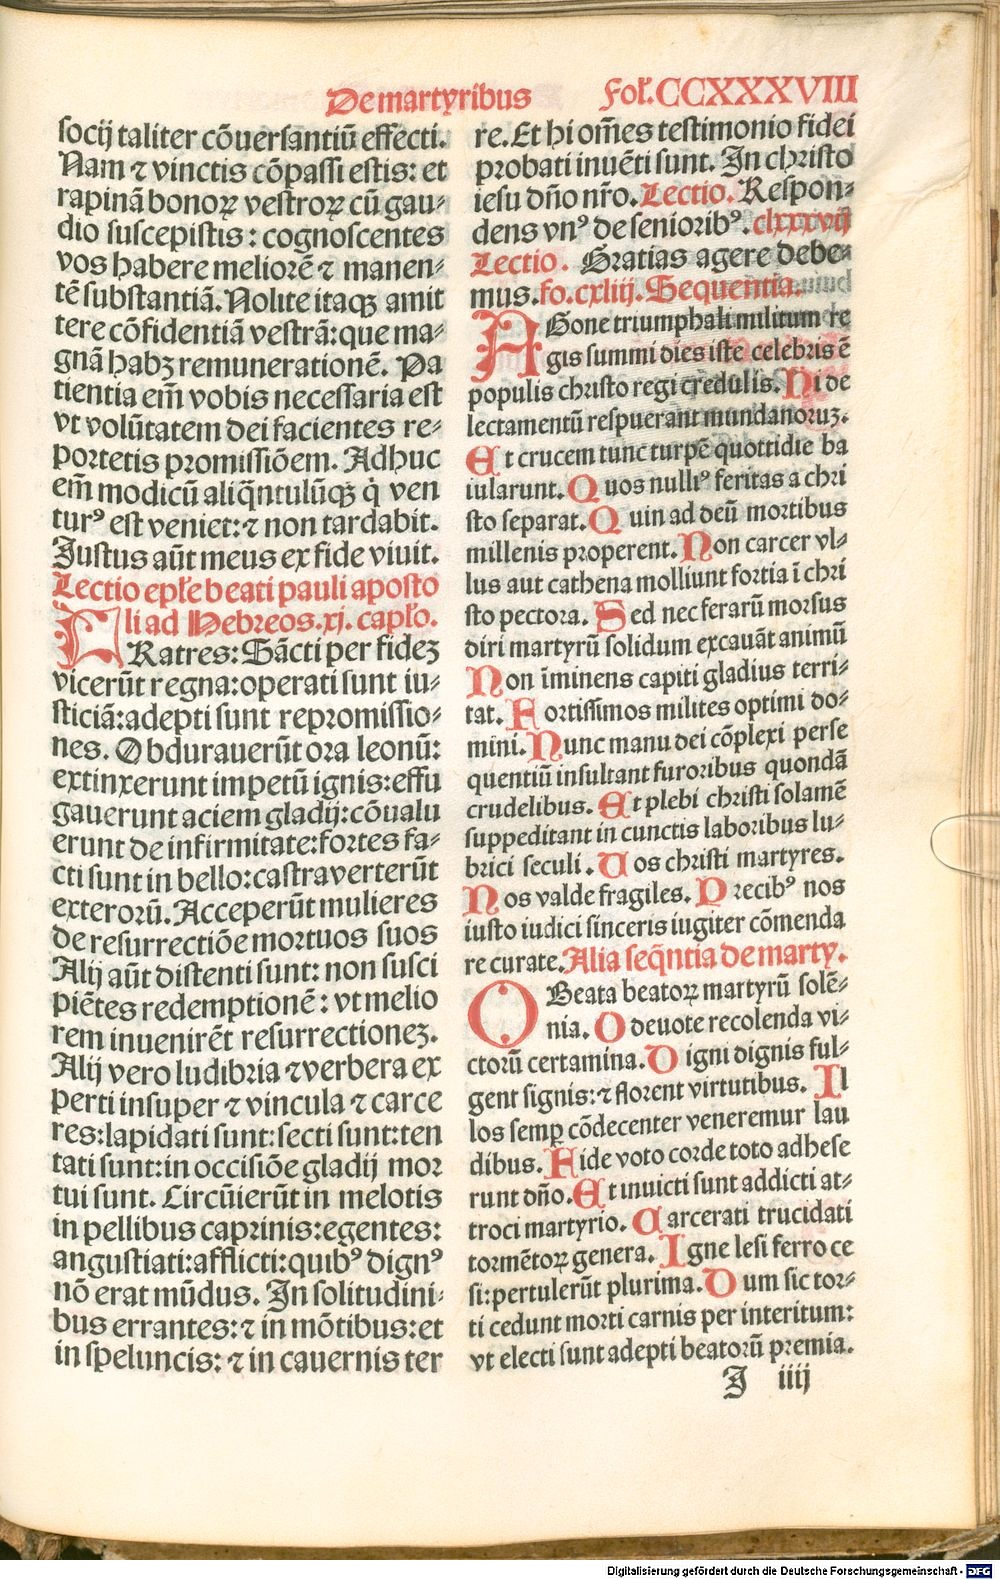 De martyribus Fol. CCXXXVIII
socij taliter cōuersantiū effecti.
Nam ⁊ vinctis cōpassi estis: et
rapinā bonoꝝ vestroꝝ cū gau-
dio suscepistis: cognoscentes
vos habere meliorē ⁊ manen-
tē substantiā. Nolite itaqꝫ amit
tere cōfidentiā vestrā: que ma-
gnā habꝫ remunerationē. Pa
tientia em̄ vobis necessaria est
vt volūtatem dei facientes re-
portetis promissiōem. Adhuc
em̄ modicū aliq̄ntulūqꝫ q̇ ven
turꝰ est veniet: ⁊ non tardabit.
Justus aūt meus ex fide viuit.
Lectio epl̄e beati pauli aposto
li ad Hebreos. xj. capl̄o.
FRatres: Sācti per fideꝫ
vicerūt regna: operati sunt iu-
sticiā: adepti sunt repromissio-
nes. Obdurauerūt ora leonū:
extinxerunt impetū ignis: effu
gauerunt aciem gladij: cōualu
erunt de infirmitate: fortes fa-
cti sunt in bello: castra verterūt
exterorū. Acceperūt mulieres
de resurrectiōe mortuos suos
Alij aūt distenti sunt: non susci
piētes redemptionē: vt melio
rem inuenirēt resurrectioneꝫ.
Alij vero ludibria ⁊ verbera ex
perti insuper ⁊ vincula ⁊ carce
res: lapidati sunt: secti sunt: ten
tati sunt: in occisiōe gladij mor
tui sunt. Circūierūt in melotis
in pellibus caprinis: egentes:
angustiati: afflicti: quibꝰ dignꝰ
nō erat mūdus. In solitudini-
bus errantes: ⁊ in mōtibus: et
in speluncis: ⁊ in cauernis ter
re. Et hi om̄es testimonio fidei
probati inuēti sunt. In christo
iesu dn̄o nr̄o. Lectio. Respon-
dens vnꝰ de senioribꝰ. clxxxvij
Lectio. Gratias agere debe-
mus. fo. cxliij. Sequentia.
AGone triumphali militum re
gis summi dies iste celebris ē
populis christo regi credulis. Hi de
lectamentū respuerant mundanoruꝫ.
Et crucem tunc turpē quottidie ba
iularunt. Quos nulliꝰ feritas a chri
sto separat. Quin ad deū mortibus
millenis properent. Non carcer vl-
lus aut cathena molliunt fortia ī chri
sto pectora. Sed nec ferarū morsus
diri martyrū solidum excauāt animū
Non īminens capiti gladius terri-
tat. Fortissimos milites optimi do-
mini. Nunc manu dei cōplexi perse
quentiū insultant furoribus quondā
crudelibus. Et plebi christi solamē
suppeditant in cunctis laboribus lu-
brici seculi. Uos christi martyres.
Nos valde fragiles. Precibꝰ nos
iusto iudici sinceris iugiter cōmenda
re curate. Alia seq̄ntia de marty.
O Beata beatoꝝ martyrū solē-
nia. O deuote recolenda vi-
ctorū certamina. Digni dignis ful-
gent signis: ⁊ florent virtutibus. Il
los semꝑ cōdecenter veneremur lau
dibus. Fide voto corde toto adhese
runt dn̄o. Et inuicti sunt addicti at-
troci martyrio. Carcerati trucidati
tormētoꝝ genera. Igne lesi ferro ce
si: pertulerūt plurima. Dum sic tor-
ti cedunt morti carnis per interitum:
vt electi sunt adepti beatorū premia.
J iiij
Digitalisierung gefördert durch die Deutsche Forschungsgemeinschaft - DFG